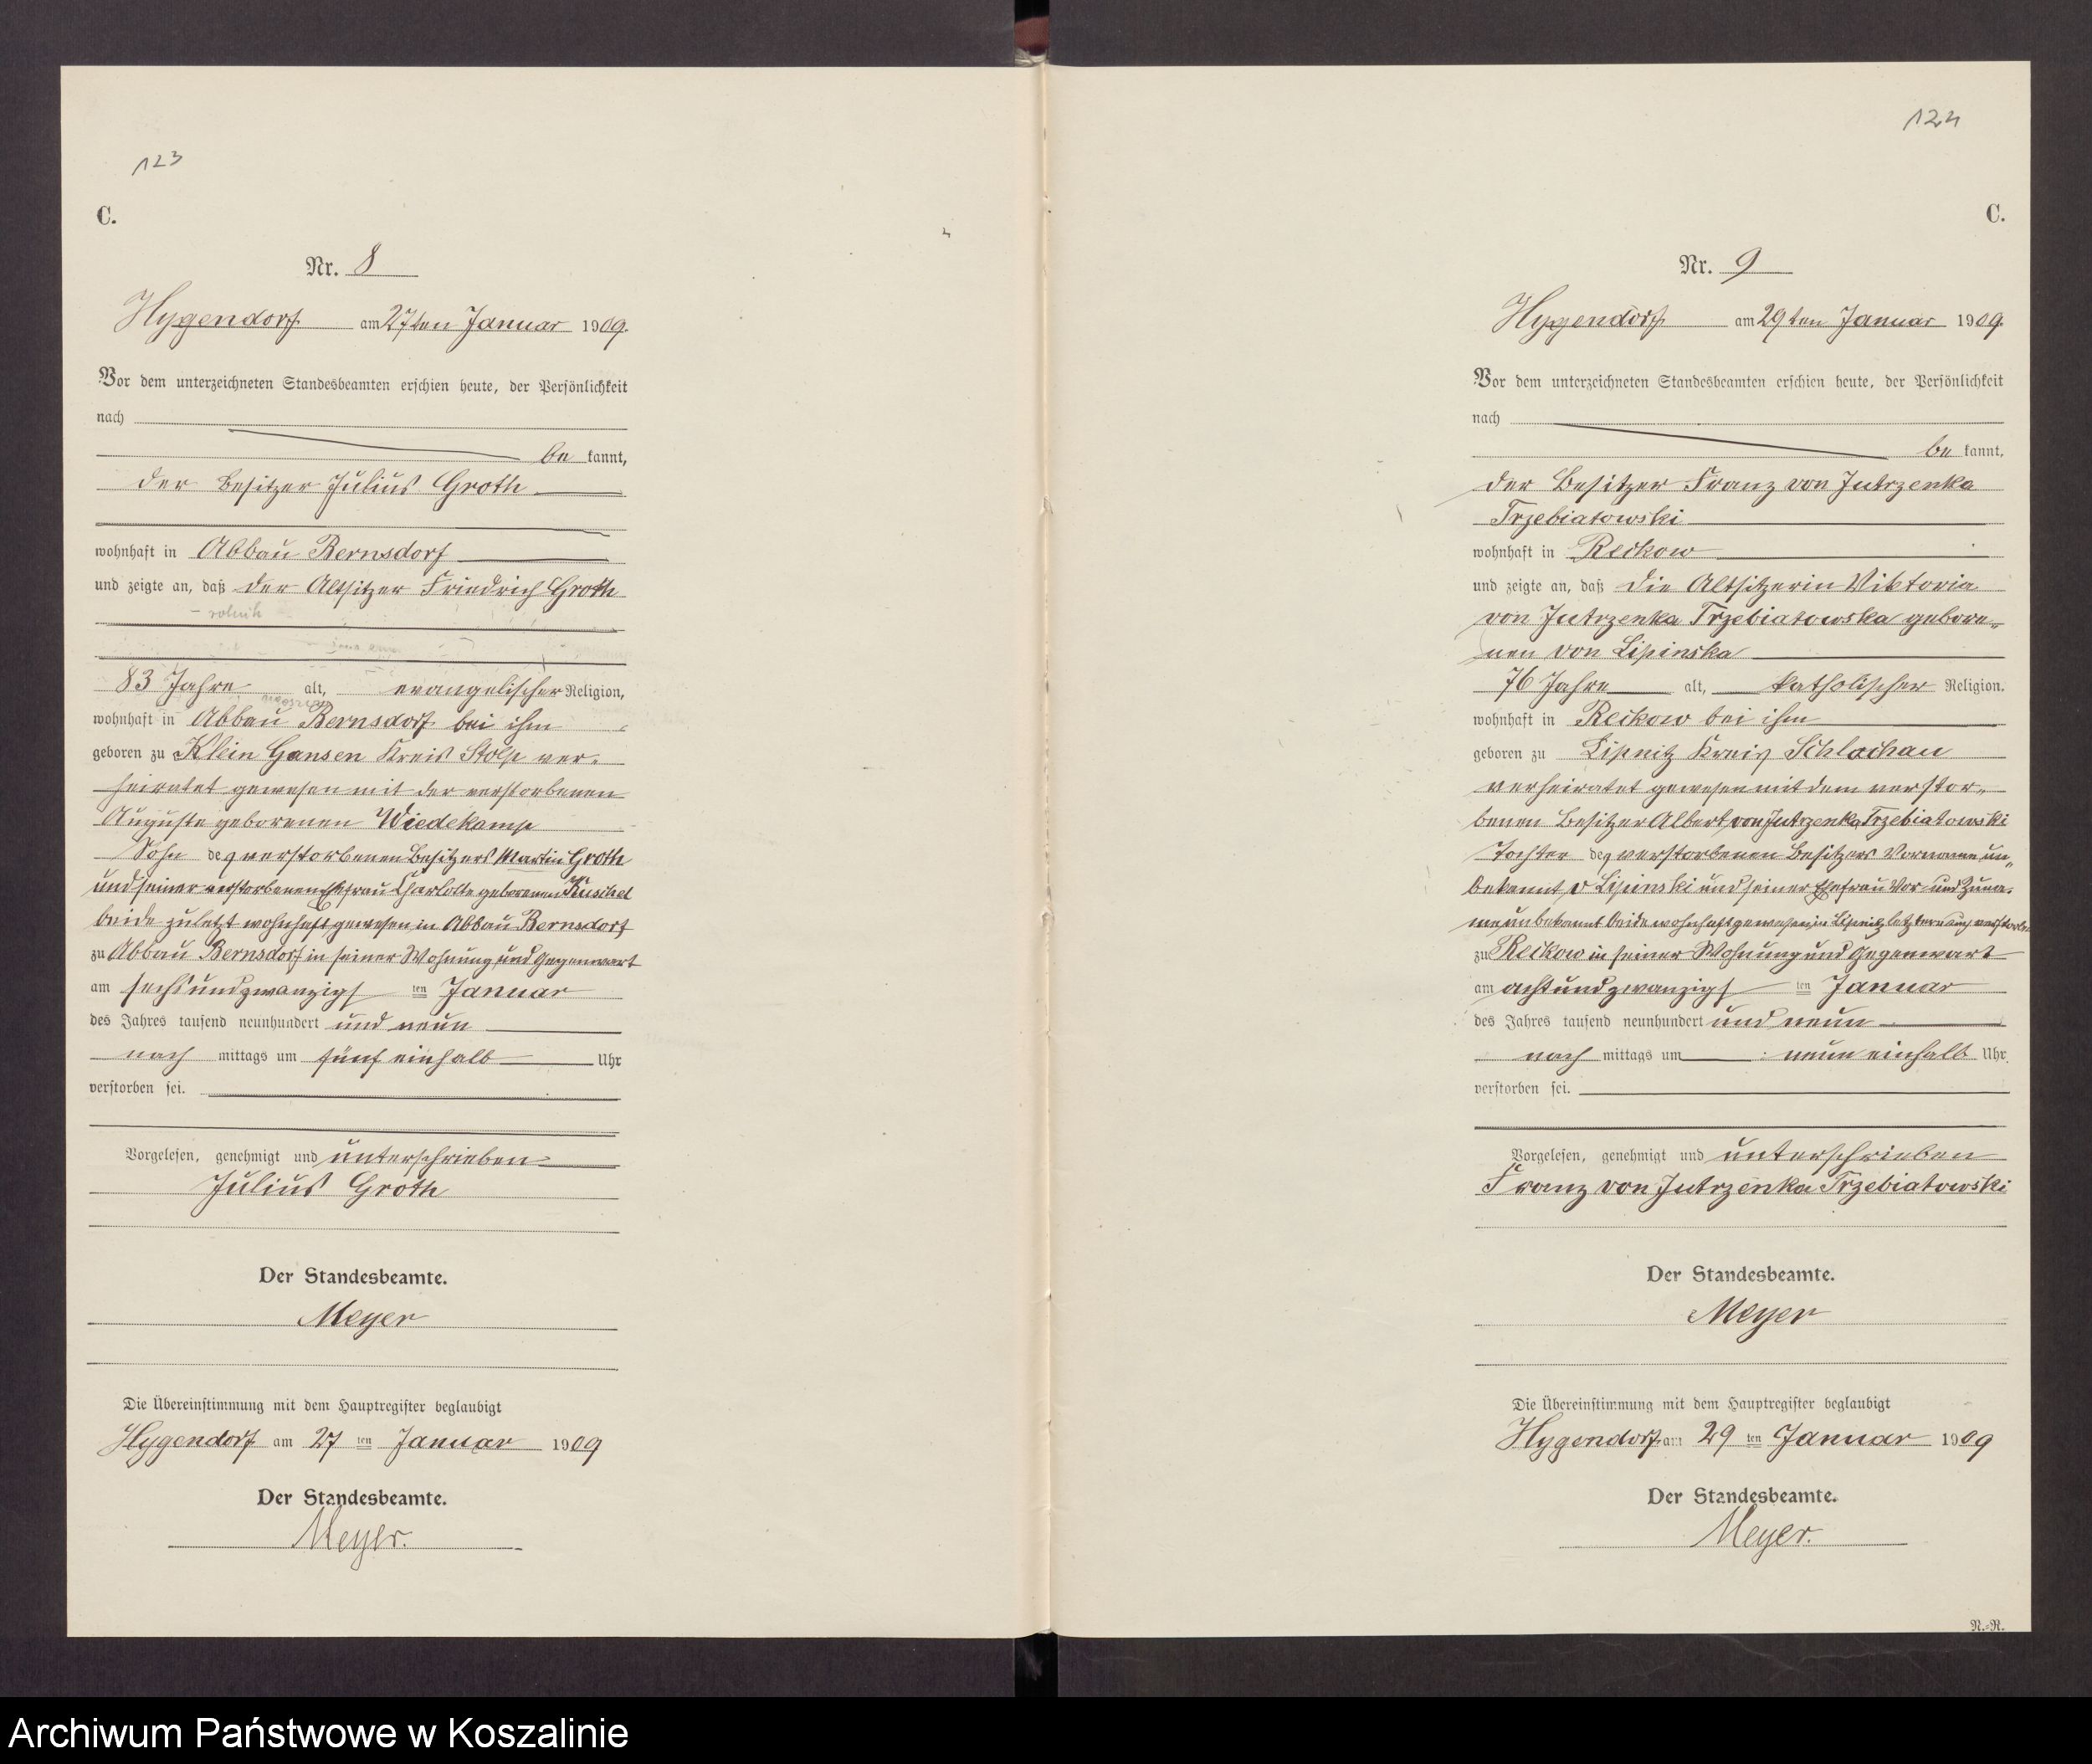 123
C.
Nr. 8
Hygendorf am 27ten Januar 1909.
Vor dem unterzeichneten Standesbeamten erschien heute, der Persönlichkeit
nach
be kannt,
der Besitzer Julius Groth
wohnhaft in Abbau Bernsdorf
und zeigte an, daß der Altsitzer Friedrich Groth
- rolnik
83 Jahre alt, evangelischer Religion,
wohnhaft in Abbau Bernsdorf bei ihm
geboren zu Klein Gansen Kreis Stolp ver-
heiratet gewesen mit der verstorbenen
Auguste geborenen Wiedekamp
Sohn des verstorbenen Besitzers Martin Groth
und seiner verstorbenen Ehefrau Charlotte geborenen Kuschel
beide zuletzt wohnhaft gewesen in Abbau Bernsdorf
zu Abbau Bernsdorf in seiner Wohnung und Gegenwart
am sechsundzwanzigs ten Januar
des Jahres tausend neunhundert und neun
nach mittags um fünf einhalb Uhr
verstorben sei.
Vorgelesen, genehmigt und unterschrieben
Julius Groth
Der Standesbeamte.
Meyer
Die Übereinstimmung mit dem Hauptregister beglaubigt
Hygendorf am 27 ten Januar 1909
Der Standesbeamte.
Meyer.
124
C.
Nr. 9
Hygendorf am 29ten Januar 1909.
Vor dem unterzeichneten Standesbeamten erschien heute, der Persönlichkeit
nach
be kannt,
der Besitzer Franz von Jutrzenka
Trzebiatowski
wohnhaft in Reckow
und zeigte an, daß die Altsitzerin Viktoria
von Jutrzenka Trzebiatowska gebore-
nen von Lipinska
76 Jahre alt, katholischer Religion.
wohnhaft in Reckow bei ihm
geboren zu Lipnitz Kreis Schlochau
verheiratet gewesen mit dem verstor-
benen Besitzer Albert von Jutrzenka Trzebiatowski
Tochter des verstorbenen Besitzers Vorname un-
bekannt v Lipinski und seiner Ehefrau Vor- und Zuna-
me unbekannt beide wohnhaft gewesen in Lipnitz
zu Reckow in seiner Wohnung und Gegenwart
am achtundzwanzigs ten Januar
des Jahres tausend neunhundert und neun
nach mittags um neun einhalb Uhr
verstorben sei.
Vorgelesen, genehmigt und unterschrieben
Franz von Jutrzenka Trzebiatowski
Der Standesbeamte.
Meyer
Die Übereinstimmung mit dem Hauptregister beglaubigt
Hygendorf am 29 ten Januar 1909
Der Standesbeamte.
Meyer.
N.-R.
Archiwum Państwowe w Koszalinie